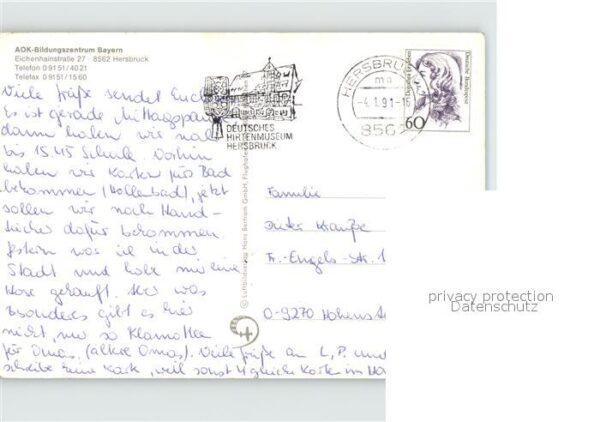 AOK-Bildungszentrum Bayern
Eichenhainstraße 27 · 8562 Hersbruck
Telefon 0 91 51/40 21
Telefax 0 91 51/15 60
Viele Grüße sendet Euch
Es ist gerade Mittagspause
dann haben wir noch
bis 15.45 Schule. Vorhin
haben wir Karten für Bad
bekommen (Hallenbad), jetzt
sollen wir noch Hand-
tücher dafür bekommen.
Gestern war ich in der
Stadt und habe mir eine
Hose gekauft. Aber was
Besonders gibt es hier
nicht, nur so Klamotten
für Omas, (ältere Omas). Viele Grüße an L, P. und
schreibe keine Karte, weil sonst 4 gleiche Karten im
DEUTSCHES
HIRTENMUSEUM
HERSBRUCK
HERSBRUCK
-4.1.91-16
856
60
Deutsche Bundespost
© Luftbildverlag Hans Bertram GmbH, Flughafen
Familie
Dieter Krauße
Fr.-Engels-Str. 1
O-9270 Hohenst
privacy protection
Datenschutz